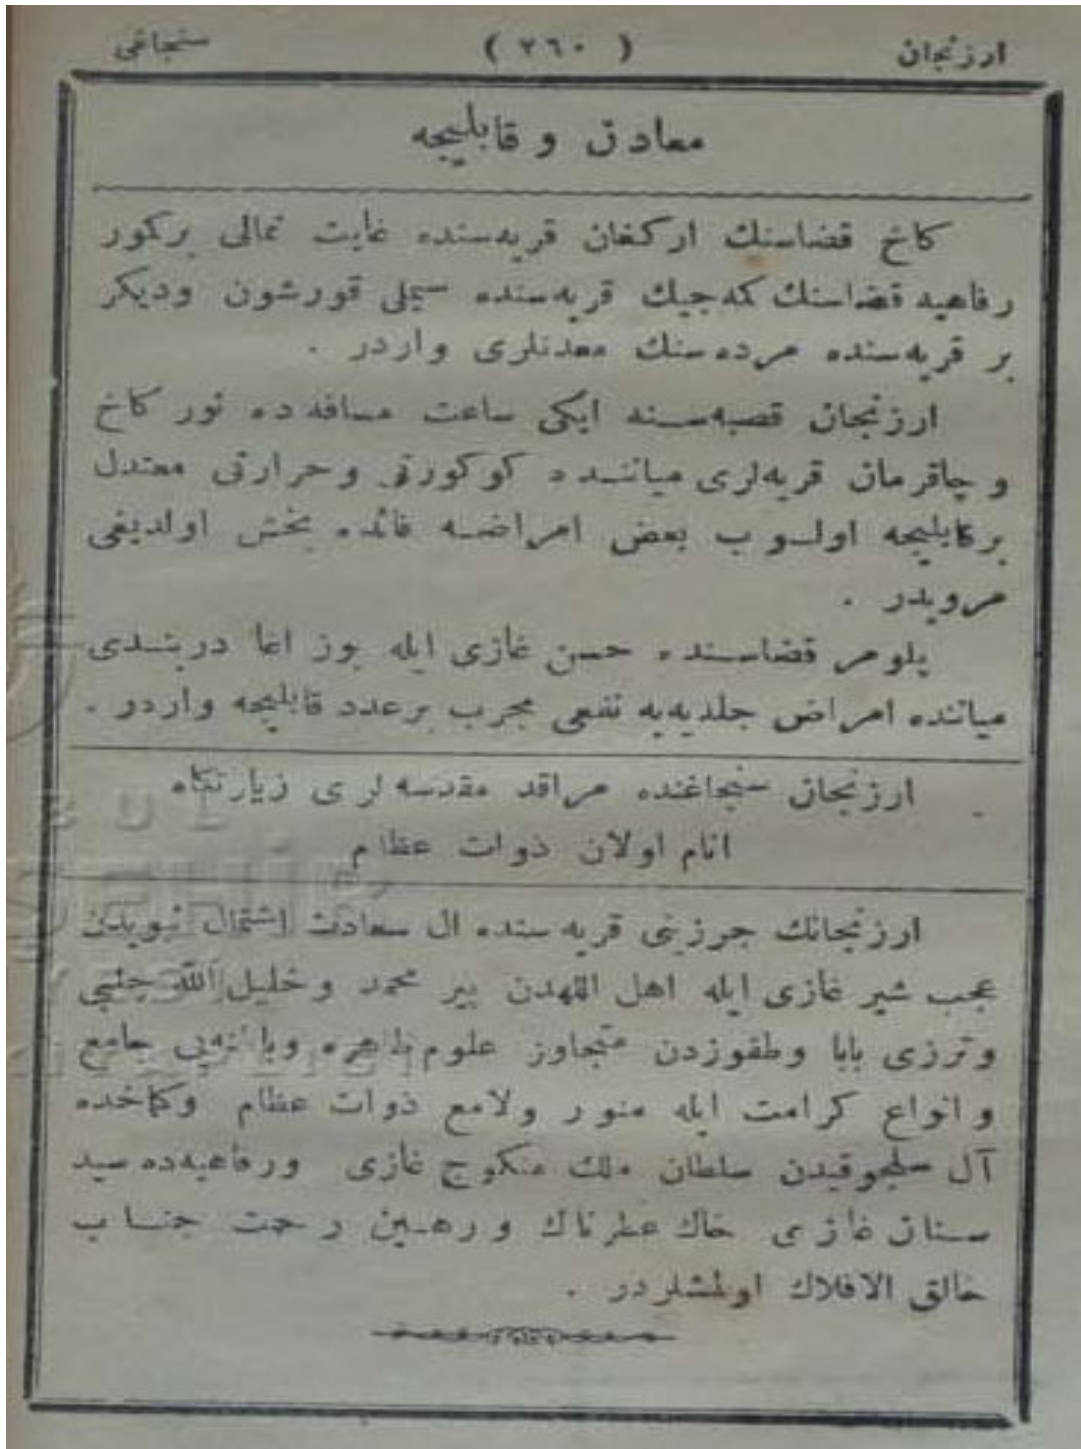 ارزنجان ( ٢٦٠ ) سنجاغی
معادن و قابلیجه
كاخ قضاسنك اركغان قریه‌سنده غایت تمالی بركور
رفاهیه قضاسنك كمه‌جیك قریه‌سنده سیملی قورشون ودیكر
بر قریه‌سنده مرده‌سنك معدنلری واردر .
ارزنجان قصبه‌سنه ایكی ساعت مسافه‌ده نور كاخ
و چاقرمان قریه‌لری میاننده كوكورتی وحرارتی معتدل
بر قابلیجه اولوب بعض امراضه فائده بخش اولدیغی
مرویدر .
پلومر قضاسنده حسن غازی ایله بوز اغا دربندی
میاننده امراض جلدیه‌یه نفعی مجرب برعدد قابلیجه واردر .
ارزنجان سنجاغنده مراقد مقدسه لری زیارتكاه
انام اولان ذوات عظام
ارزنجانك جرزینی قریه سنده ال سعادت اشتمال نبویدن
عجب شیر غازی ایله اهل اللهدن پیر محمد وخلیل الله چلبی
وترزی بابا وطقوزدن متجاوز علوم ظاهره وباطنه‌یی جامع
وانواع كرامت ایله منور ولامع ذوات عظام وكماخده
آل سلجوقیدن سلطان ملك منكوج غازی ورفاهیه‌ده سید
سنان غازی خاك عطرناك ورهین رحمت جناب
خالق الافلاك اولمشلردر .